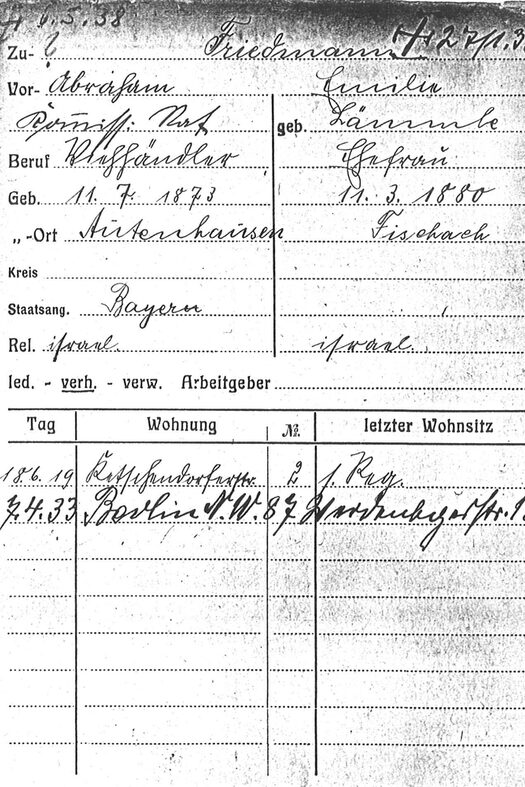 6.5.38
Zu- Friedmann 27/1.3
Vor- Abraham Emilie
Kommiss. Rat geb. Lämmle
Beruf Viehhändler Ehefrau
Geb. 11. 7. 1873 11. 3. 1880
„-Ort Autenhausen Fischach
Kreis
Staatsang. Bayern
Rel. israel. israel.
led. - verh. - verw. Arbeitgeber
Tag Wohnung №. letzter Wohnsitz
18.6.19 Ketschendorferstr. 2 s. Reg.
7.4.33 Berlin N.W. 87